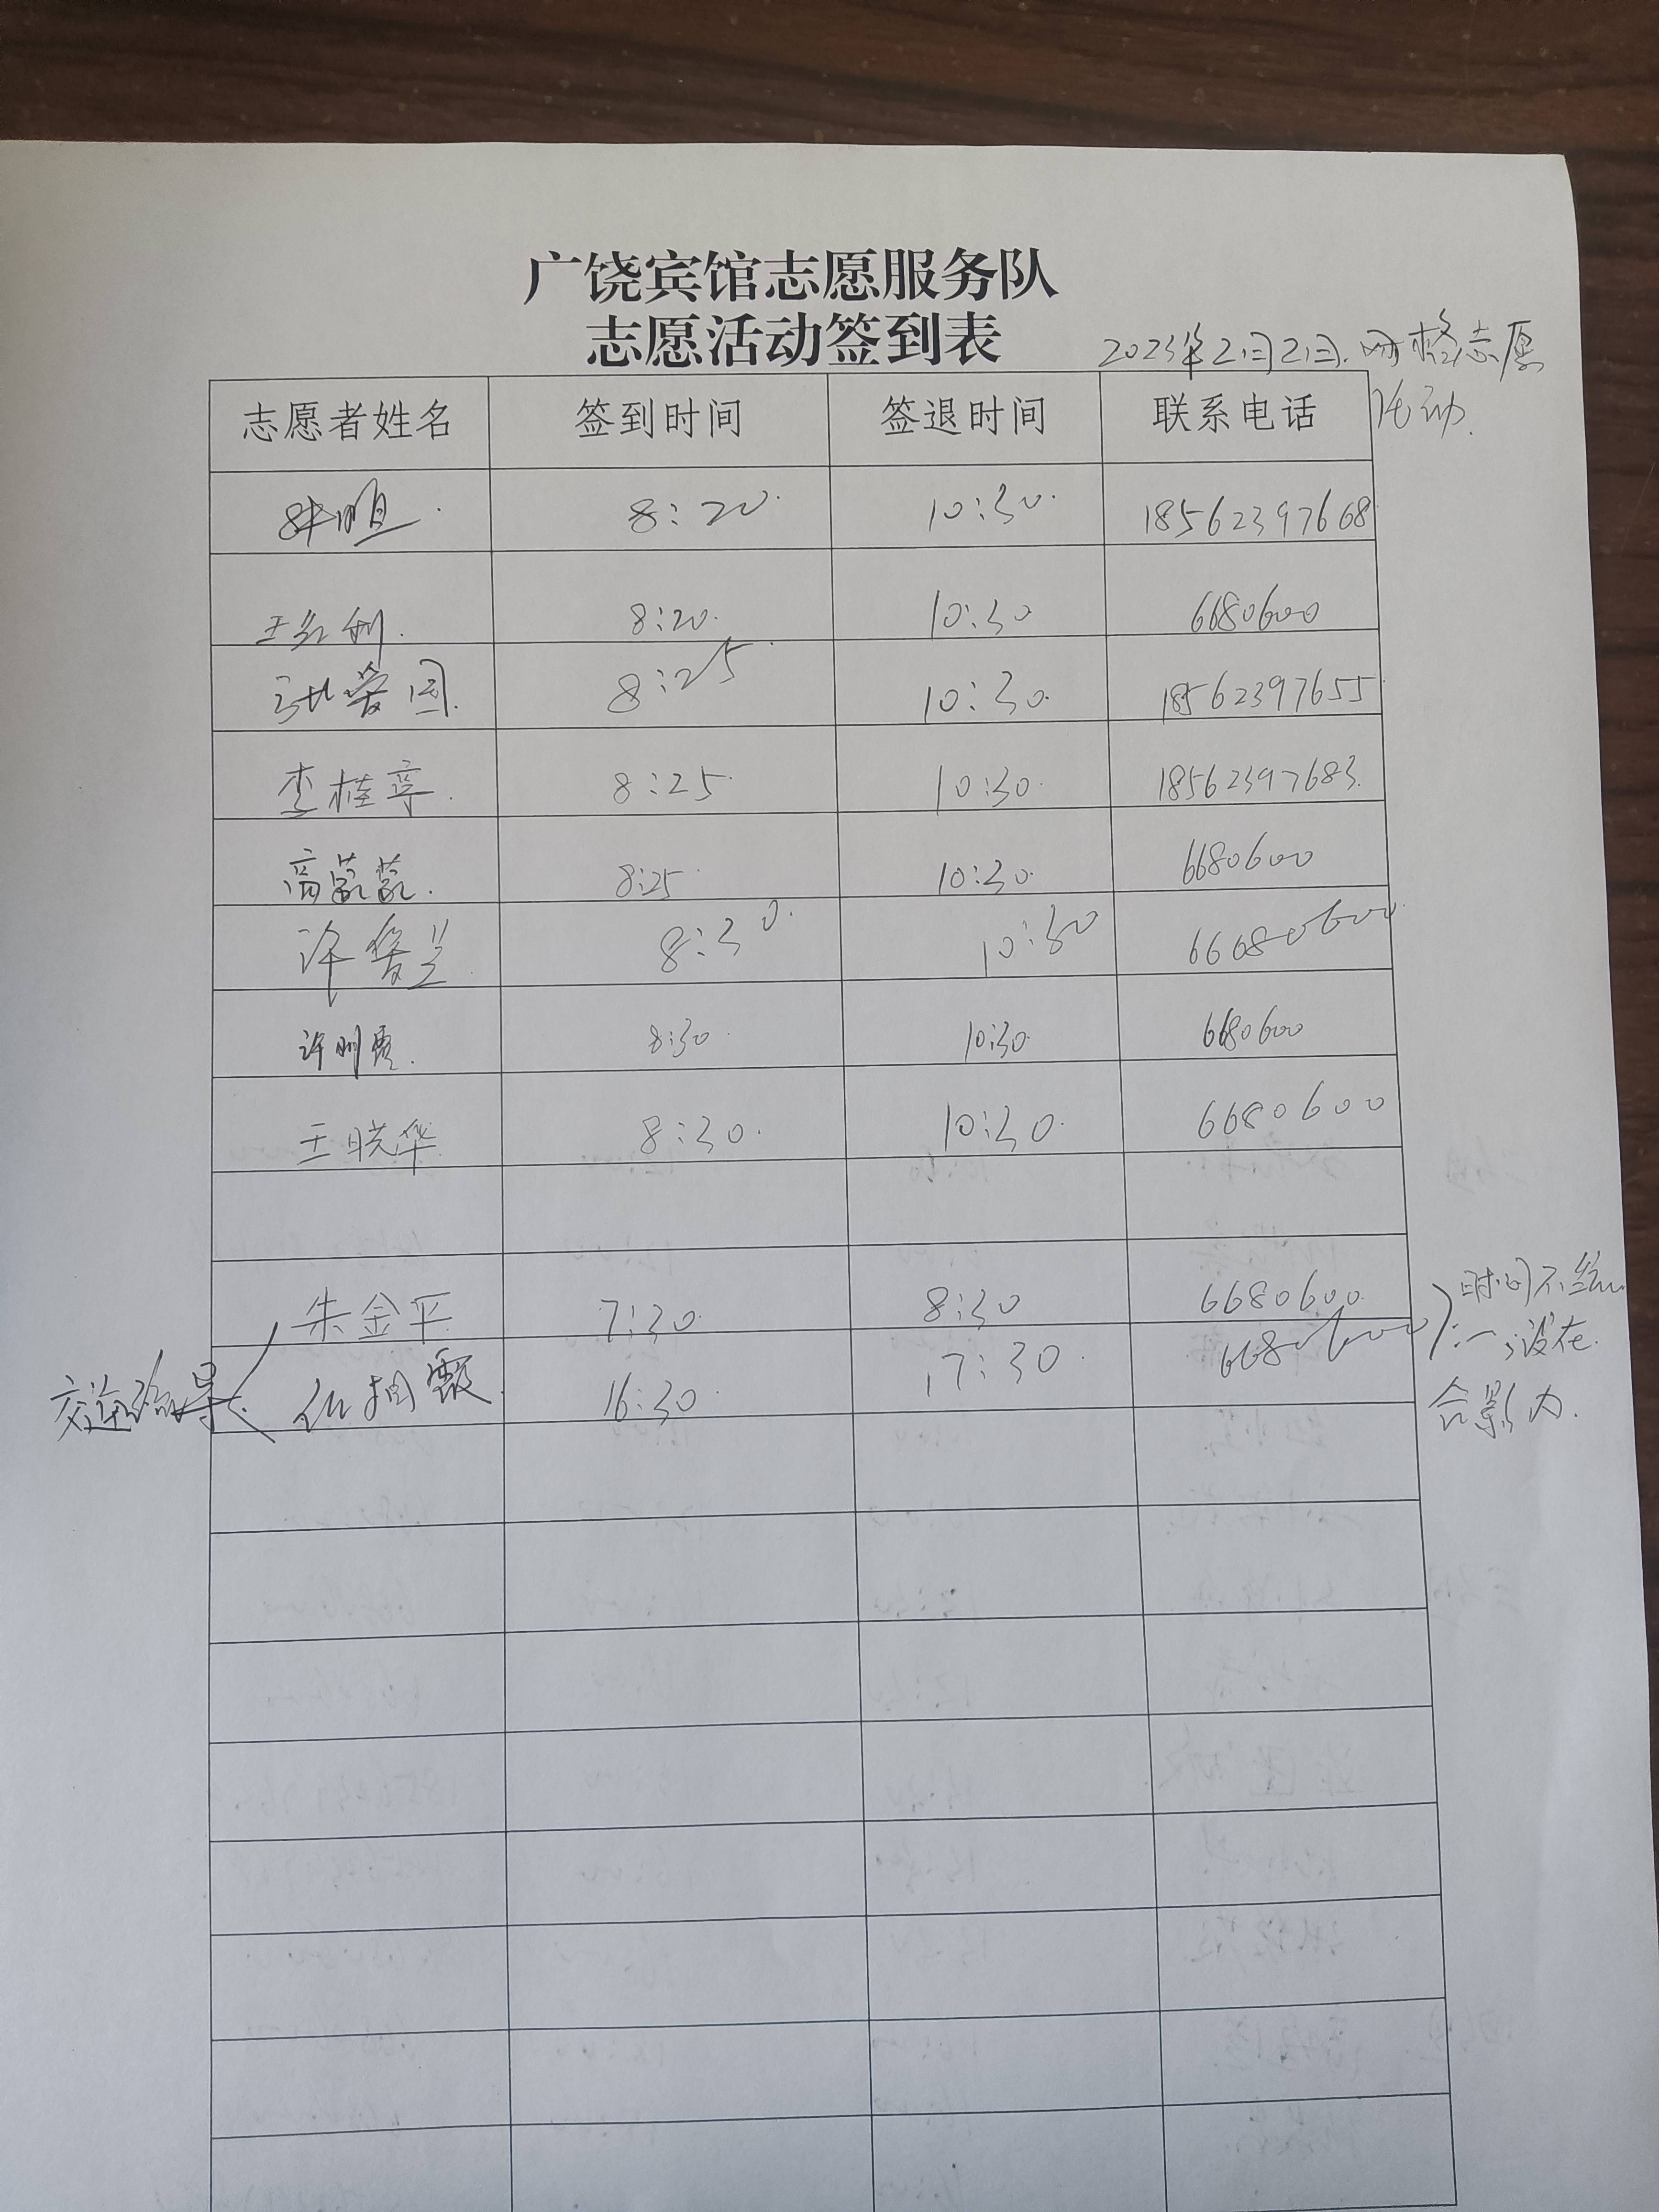 广饶宾馆志愿服务队
志愿活动签到表
2023年2月2日.网格志愿
活动.
志愿者姓名 签到时间 签退时间 联系电话
8:20. 10:30. 18562397668
王红利. 8:20. 10:30 6680600
张爱国. 8:25 10:30. 18562397655
李桂亭. 8:25. 10:30. 18562397683.
高蒙蒙. 8:25 10:30. 6680600
许爱兰 8:30. 10:30 6680600
许明霞. 8:30 10:30. 6680600
王晓华 8:30. 10:30. 6680600
朱金平 7:30. 8:30 6680600. 时间不统
16:30. 17:30. 6680600 一,没在.
交通 导 合影内.